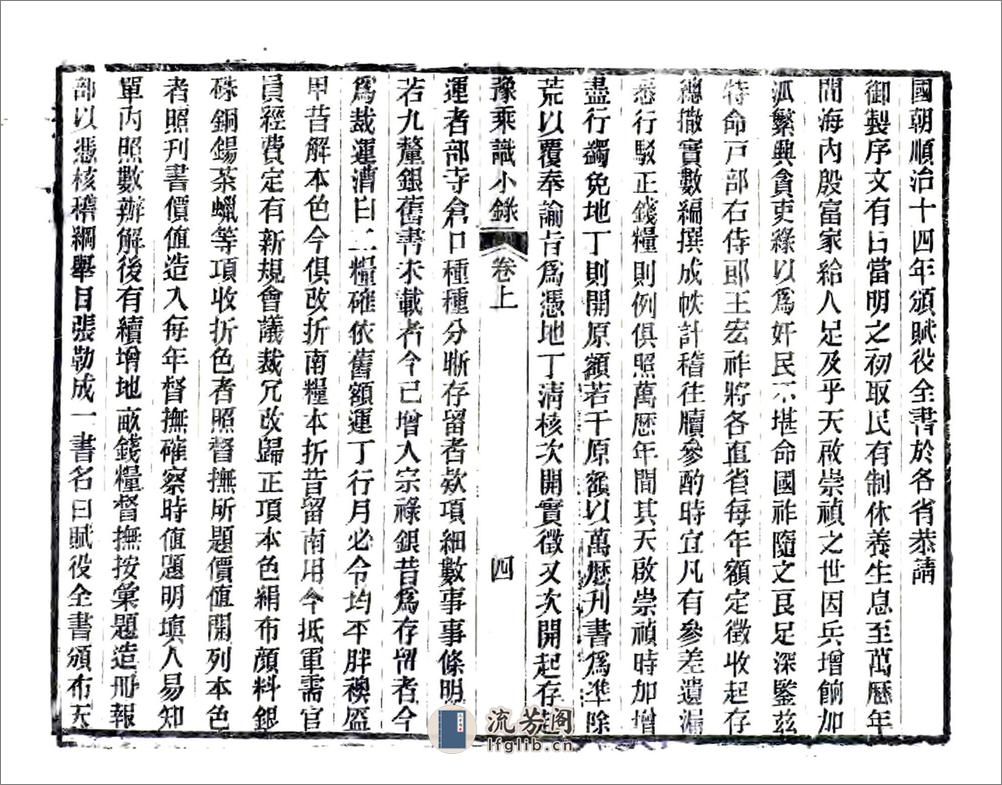 國朝順治十四年頒賦役全書於各省恭讀
御製序文有曰當明之初取民有制休養生息至萬歷年
間海內殷富家給人足及乎天啟崇禎之世因兵增餉加
派繁興貪吏緣以為奸民不堪命國祚隨之良足深鑒茲
特命戸部右侍郎王宏祚將各直省每年額定徵收起存
總撒實數編撰成帙計稽往牘參酌時宜凡有參差遺漏
悉行駁正錢糧則例俱照萬歷年間其天啟崇禎時加增
盡行蠲免地丁則開原額若干原額以萬歷刋書爲準除
荒以覆奉諭旨爲憑地丁清核次開實徵又次開起存起
豫乘識小錄 卷上 四
運者部寺倉口種種分晰存留者欵項細數事事條明
若九釐銀舊書未載者今已增入宗祿銀昔爲存留者今
爲裁運漕白二糧確依舊額運丁行月必令均平胖襖盔
甲昔解本色今俱改折南糧本折昔留南用今抵軍需官
員經費定有新規會議裁冗改歸正項本色絹布顏料銀
硃銅錫茶蠟等項收折色者照督撫所題價值開列本色
者照刋書價值造入每年督撫確察時值題明填入易知
單內照數辦解後有續增地畝錢糧督撫按彙題造册報
部以憑核稽綱舉目張勒成一書名曰賦役全書頒布天
流芳阁
lfglib.cn